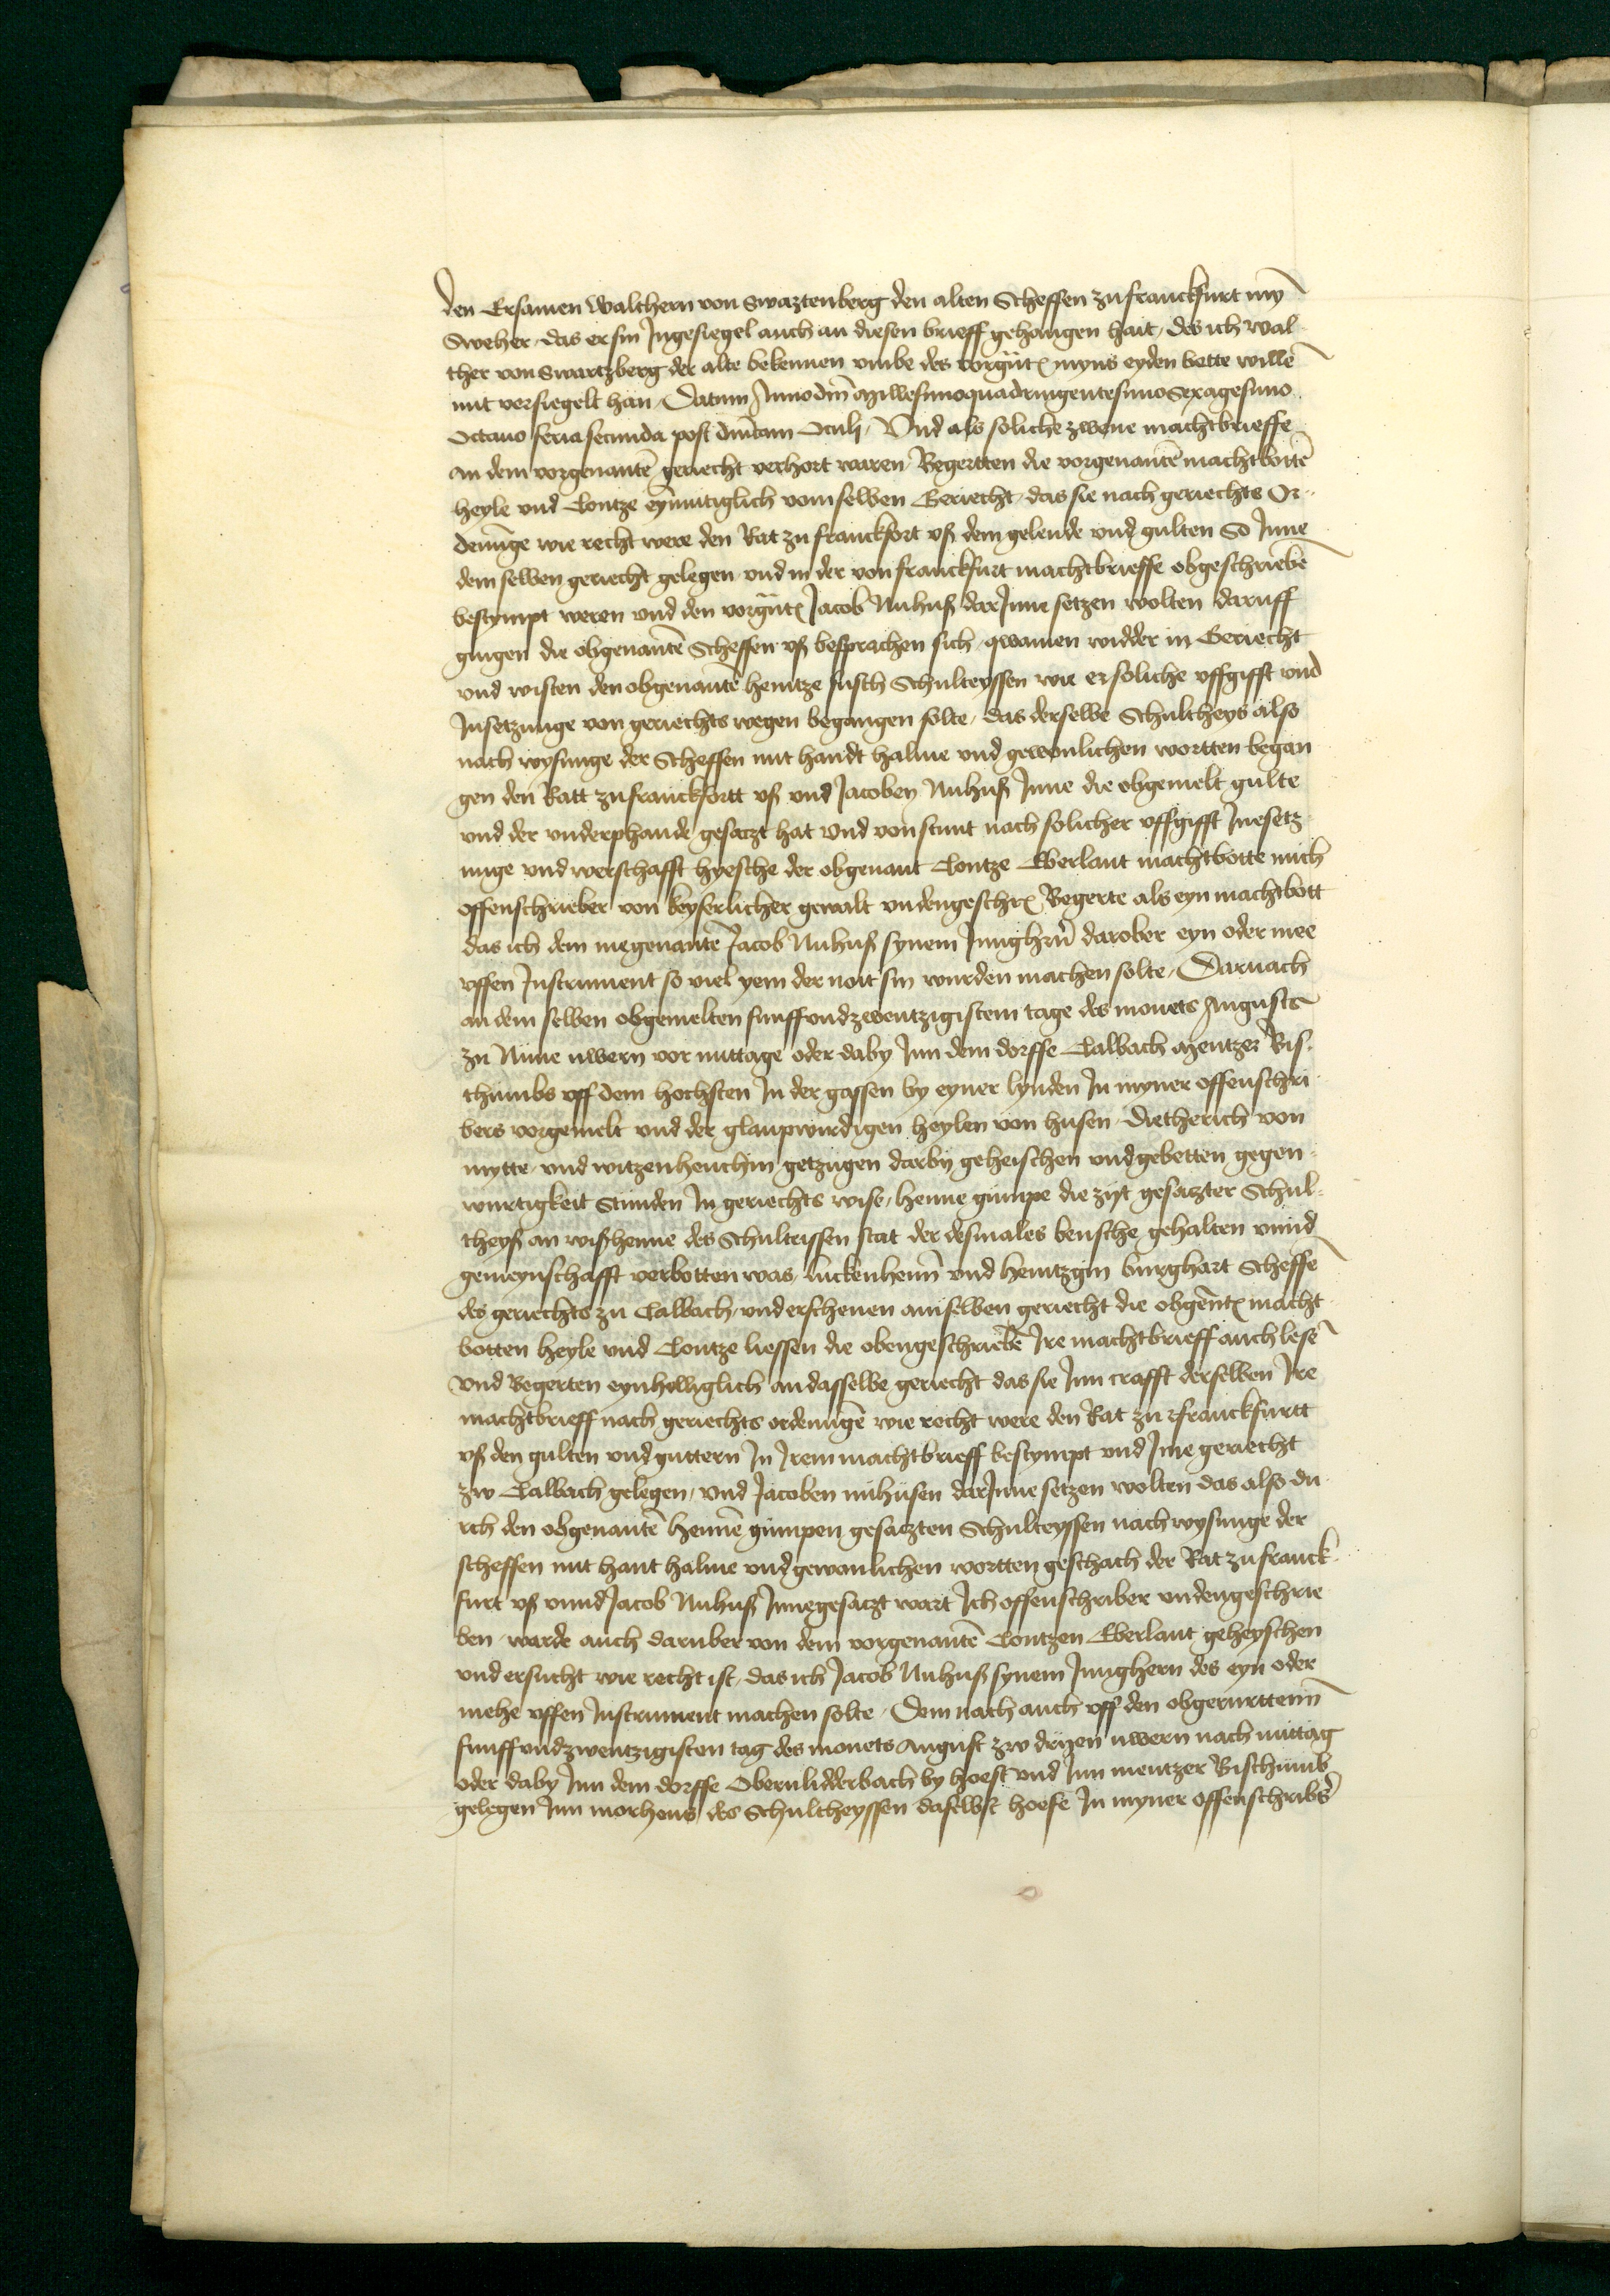 den Ersamen Walthern von Swaztenberg den alten Scheffen zu franckfurt myn̄
Sweher, das er sin Jngesiegel auch an diesen brieff gehangen hait, des ich wal
ther von Swartzberg der alte bekennen vmbe des vorgn̄t myns eyden bette willē
mit versiegelt han, Datum Anno dm̄ Millesimoquadringentesimo Sexagesimo
Octauo feria secunda post dm̄cam Oculi, Vnd als soliche zwene machtbrieffe
an dem vorgenantē geriecht verhort waren Begertten die vorgenantē machtbottē
heyle vnd Contze eynmutiglich vom selben Geriecht, das sie nach geriechts Or-
denūge wie recht were den Rat zu franckfort vß dem gelende vnd gulten So Jnne
dem selben geriecht gelegen vnd in der von franckfurt machtbrieffe obgeschriebē
bestympt weren vnd den vorgn̄t Jacob Nuhuß dar Jnne setzen wolten daruff
gingen die obgenantē Scheffen vß besprachen sich, qwamen widder in Geriecht
vnd wisten den obgenantē hentze fusch Schulteyssen wie er soliche vffgifft vnd
Jnsetzunge von geriechts wegen begangen solte, das derselbe Schultheys also
nach wysunge der Scheffen mit handt halme vnd gewonlichen wortten began
gen den Ratt zu franckfortt vß vnd Jacoben Nuhuß Jnne die obgemelt gulte
vnd der vnderphande gesatzt hat vnd von stunt nach solicher vffgifft Jnesetz
unge vnd werschafft hyesche der obgenant Contze Eberlaut machtbotte mich
offenschrieber von keyserlicher gewalt vndengeschr Begerte als eyn machtbott
das ich dem megenantē Jacob Nuhuß synem Junghern̄ darober eyn oder mee
vffen Jnstrument so viel yem der noit sin wurden machen solte, Darnach
an dem selben obgemelten funffvndzwentzigistem tage des monets Augusts
zu Nune vwern vor mittage oder daby Jnn dem dorffe Calbach Mentzer Bis-
thumbs vff dem hochsten Jn der gassen by eyner lynden Jn myner offenschri
bers vorgemelt vnd der glaupwurdigen heylen von husen Dietherich von
mytte vnd witzenhenchin getzugen darby geheischen vnd gebetten gegen-
wurtigkeit Stunden Jn geriechts wise, henne gumpe die zijt gesatzter Schul-
theyß an wißhenne des Schulteissen stat der desmales kensche gehalten vnnd
gemeynschafft verbotten was, luckenhenn̄ vnd hentzgin burghart Scheffē
des geriechts zu Calbach, vnd erschenen am selben geriecht die obgen̄t macht
botten heyle vnd Contze liessen die obengeschriebē Jre machtbrieff auch lesē
vnd Begerten eynhelliglich an dasselbe geriecht das sie Jnn crafft derselben Jre
machtbrieff nach geriechts ordenūgē wie recht were den Rat zu franckfurtt
vß den gulten vnd guttern Jn Jrem machtbrieff bestympt vnd Jme geriecht
zw Calbach gelegen, vnd Jacoben nuhusen dar Jnne setzen wolten das also du
rch den obgenantē hennē gumpen gesatzten Schulteyssen nach wysunge der
scheffen mit hant halme vnd gewonlichen wortten geschach der Rat zu franck-
furt vß vnnd Jacob Nuhuß Jnnegesatzt wart Jch offenschriber vndengeschrie
ben, warde auch daruber von dem vorgenantē Contzen Eberlaut geheyschen
vnd ersucht wie recht ist, das ich Jacob Nuhuß synem Junghern des eyn oder
mehe vffen Jnstrument machen solte, Dem nach auch vff den obgerurttenn̄
funffvndzwentzigisten tag des monets August zw dryen vwern nach mittag
oder daby Jnn dem dorffe Obernlidderbach by hoest vnd Jnn mentzer Bischtumb
gelegen Jnn morhens des Schultheyssen daselbst hoefe Jn myner offenschribs̄